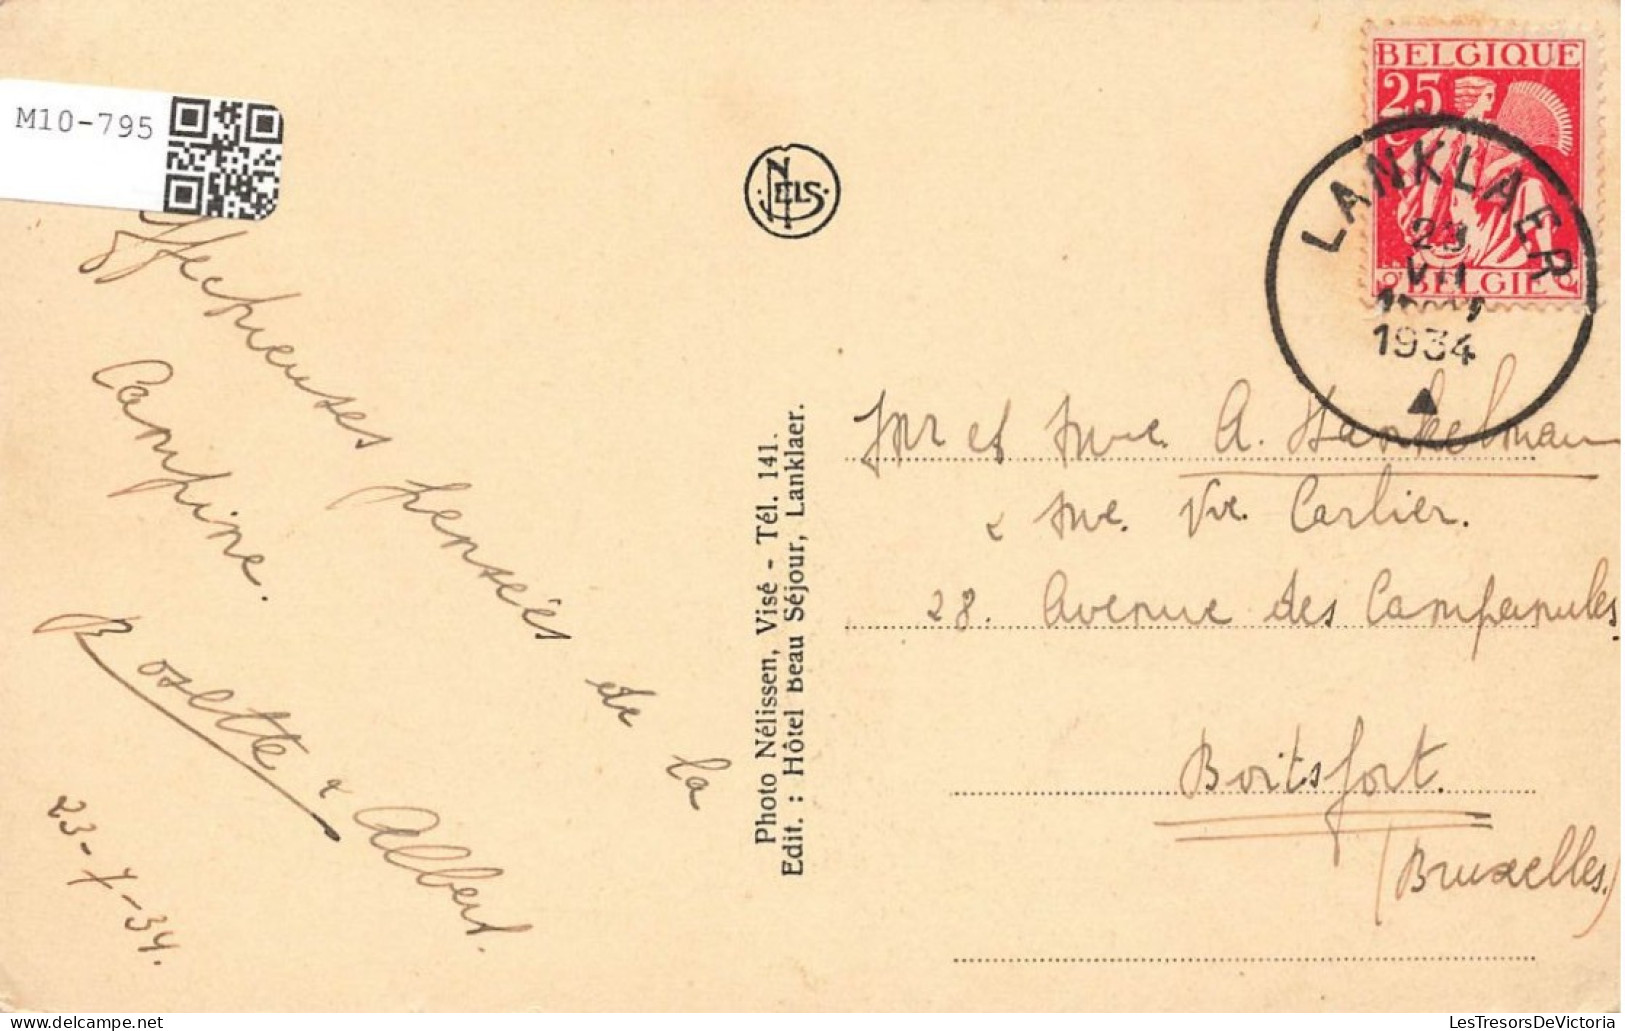 M10-795
Affectueuses pensées de la
Campine.
Rosette & Albert.
23-7-34.
NELS
Photo Nélissen, Visé - Tél. 141.
Edit. : Hôtel Beau Séjour, Lanklaer.
BELGIQUE
25
BELGIE
LANKLAER
23
VII
1934
Mr et Mme A. Hankelman
& Me. Vve. Carlier.
28. Avenue des Campanules.
Boitsfort.
(Bruxelles.)
LesTresorsDeVictoria
delcampe.net